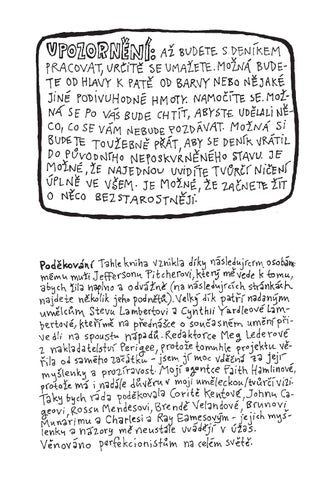 UPOZORNĚNÍ: AŽ BUDETE S DENÍKEM
PRACOVAT, URČITĚ SE UMAŽETE. MOŽNÁ BUDE-
TE OD HLAVY K PATĚ OD BARVY NEBO NĚJAKÉ
JINÉ PODIVUHODNÉ HMOTY. NAMOČÍTE SE. MOŽ-
NÁ SE PO VÁS BUDE CHTÍT, ABYSTE UDĚLALI NĚ-
CO, CO SE VÁM NEBUDE POZDÁVAT. MOŽNÁ SI
BUDETE TOUŽEBNĚ PŘÁT, ABY SE DENÍK VRÁTIL
DO PŮVODNÍHO NEPOSKVRNĚNÉHO STAVU. JE
MOŽNÉ, ŽE NAJEDNOU UVIDÍTE TVŮRČÍ NIČENÍ
ÚPLNĚ VE VŠEM. JE MOŽNÉ, ŽE ZAČNETE ŽÍT
O NĚCO BEZSTAROSTNĚJI.
Poděkování Tahle kniha vznikla díky následujícím osobám:
mému muži Jeffersonu Pitcherovi, který mě vede k tomu,
abych žila naplno a odvážně (na následujících stránkách
najdete několik jeho podnětů). Velký dík patří nadaným
umělcům Stevu Lambertovi a Cynthii Yardleové Lam-
bertové, kteří mě na přednášce o současném umění při-
vedli na spoustu nápadů. Redaktorce Meg Lederové
z nakladatelství Perigee, protože tomuhle projektu vě-
řila od samého začátku - jsem jí moc vděčná za její
myšlenky a prozíravost. Mojí agentce Faith Hamlinové,
protože má i nadále důvěru v moji uměleckou/tvůrčí vizi.
Taky bych ráda poděkovala Coritě Kentové, Johnu Ca-
geovi, Rossu Mendesovi, Brendě Velandové, Brunovi
Munarimu a Charlesi a Ray Eamesovým - jejich myš-
lenky a názory mě neustále uvádějí v úžas.
Věnováno perfekcionistům na celém světě.